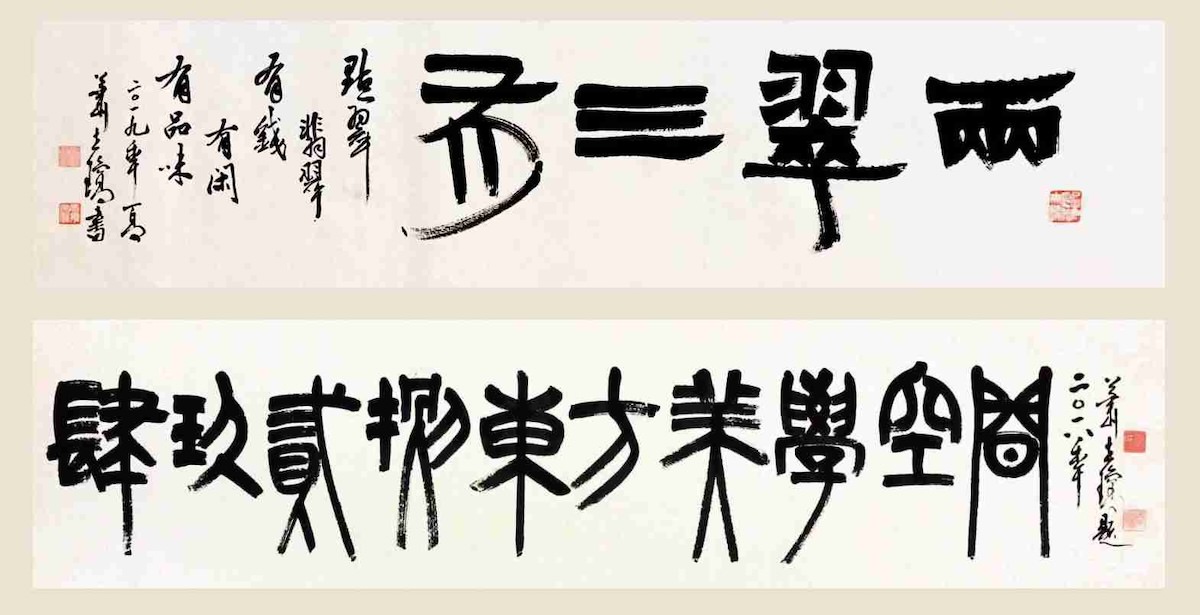 兩翠三有
點翠
翡翠
有錢
有閑
有品味
二〇一九年夏
書
肆玖貳捌東方美學空間
二〇一八年
題